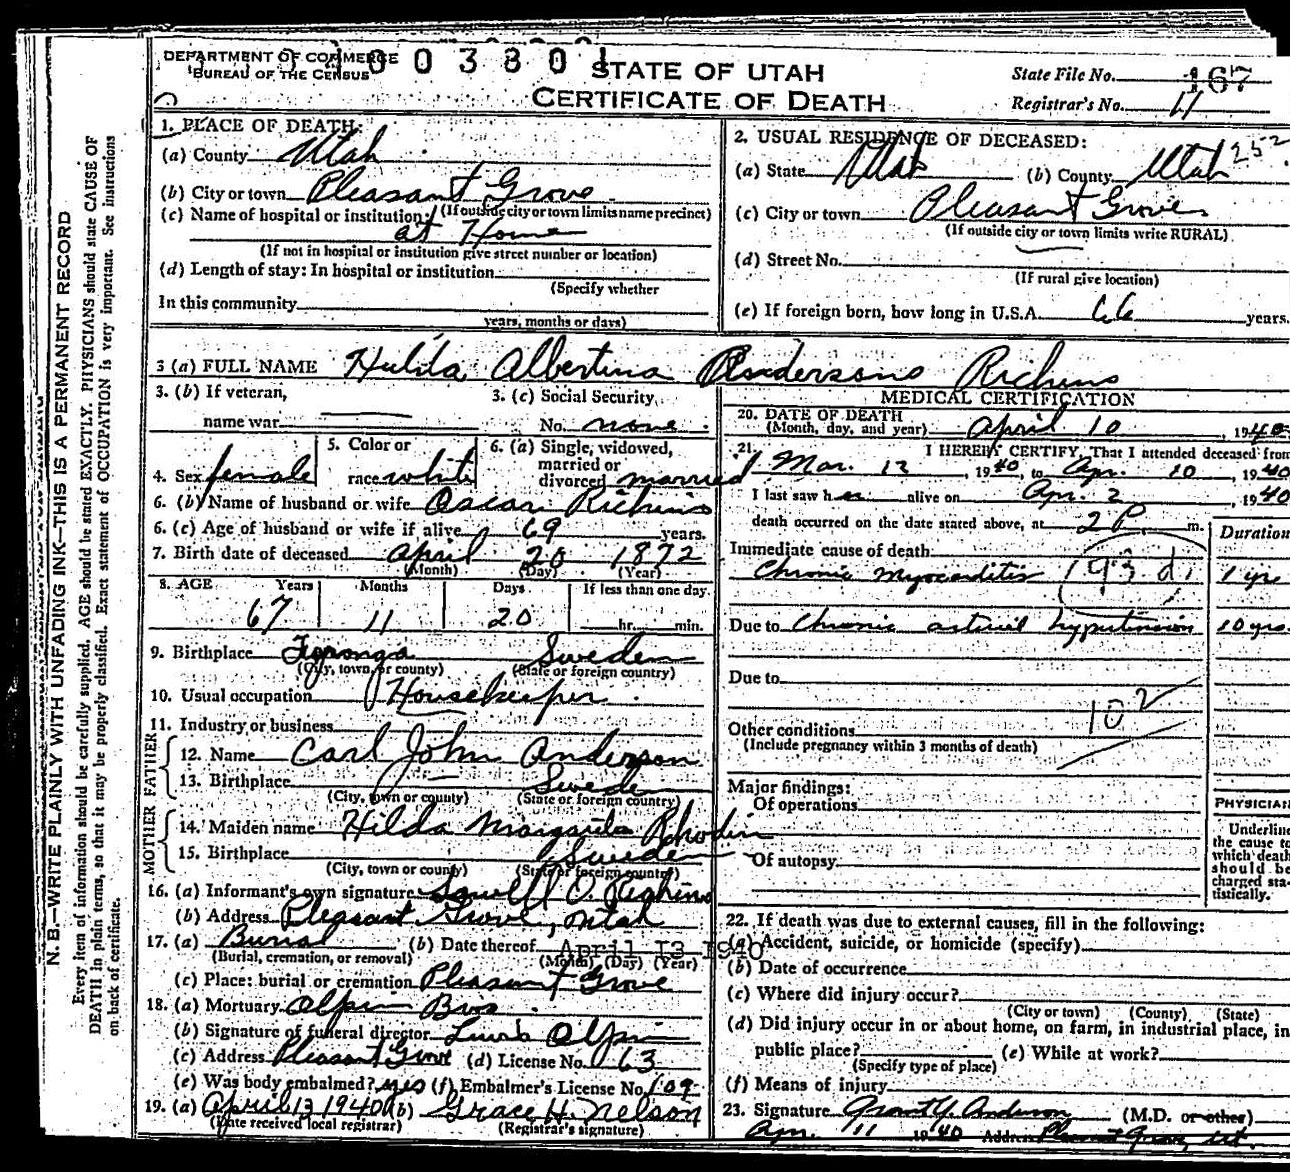 DEPARTMENT OF COMMERCE
BUREAU OF THE CENSUS
0 0 3 8 0 1
STATE OF UTAH
CERTIFICATE OF DEATH
State File No. 167
Registrar's No. 11
1. PLACE OF DEATH:
(a) County Utah
(b) City or town Pleasant Grove
(If outside city or town limits name precinct)
(c) Name of hospital or institution:
at Home
(If not in hospital or institution give street number or location)
(d) Length of stay: In hospital or institution
(Specify whether
In this community
years, months or days)
2. USUAL RESIDENCE OF DECEASED:
(a) State Utah (b) County Utah 252
(c) City or town Pleasant Grove
(If outside city or town limits write RURAL)
(d) Street No.
(If rural give location)
(e) If foreign born, how long in U.S.A. 66 years.
3 (a) FULL NAME Hulda Albertina Andersons Richins
3. (b) If veteran,
name war
3. (c) Social Security
No. none
4. Sex female
5. Color or
race white
6. (a) Single, widowed,
married or
divorced married
6. (b) Name of husband or wife Oscar Richins
6. (c) Age of husband or wife if alive 69 years.
7. Birth date of deceased April 20 1872
(Month) (Day) (Year)
8. AGE Years Months Days If less than one day.
67 11 20 hr. min.
9. Birthplace Sweden
(City, town, or county) (State or foreign country)
10. Usual occupation Housekeeper
11. Industry or business
FATHER
12. Name Carl John Anderson
13. Birthplace Sweden
(City, town or county) (State or foreign country)
MOTHER
14. Maiden name Hilda Margarita Rhodin
15. Birthplace Sweden
(City, town or county) (State or foreign country)
16. (a) Informant's own signature Lowell O. Richins
(b) Address Pleasant Grove, Utah
17. (a) Burial (b) Date thereof April 13 1940
(Burial, cremation, or removal) (Month) (Day) (Year)
(c) Place: burial or cremation Pleasant Grove
18. (a) Mortuary Olpin Bros
(b) Signature of funeral director Olpin
(c) Address Pleasant Grove (d) License No. 63
(e) Was body embalmed? yes (f) Embalmer's License No. 109
19. (a) April 13 1940 (b) Grace H. Nelson
(Date received local registrar) (Registrar's signature)
MEDICAL CERTIFICATION
20. DATE OF DEATH
(Month, day, and year) April 10, 1940
21. I HEREBY CERTIFY, That I attended deceased from
Mar. 12 1940, to Apr. 10, 1940
I last saw her alive on Apr. 2 1940
death occurred on the date stated above, at 2 P. m.
Duration
Immediate cause of death
Chronic myocarditis 93 d 1 yr.
Due to Chronic arterial hypertension 10 yrs.
Due to
102
Other conditions
(Include pregnancy within 3 months of death)
Major findings:
Of operations
Of autopsy
PHYSICIAN
Underline
the cause to
which death
should be
charged sta-
tistically.
22. If death was due to external causes, fill in the following:
(a) Accident, suicide, or homicide (specify)
(b) Date of occurrence
(c) Where did injury occur?
(City or town) (County) (State)
(d) Did injury occur in or about home, on farm, in industrial place, in
public place? (e) While at work?
(Specify type of place)
(f) Means of injury
23. Signature Grant Y. Anderson (M.D. or other)
Apr. 11 1940 Address Pleasant Grove, Ut.
N. B.—WRITE PLAINLY WITH UNFADING INK—THIS IS A PERMANENT RECORD
Every item of information should be carefully supplied. AGE should be stated EXACTLY. PHYSICIANS should state CAUSE OF
DEATH in plain terms, so that it may be properly classified. Exact statement of OCCUPATION is very important. See instructions
on back of certificate.